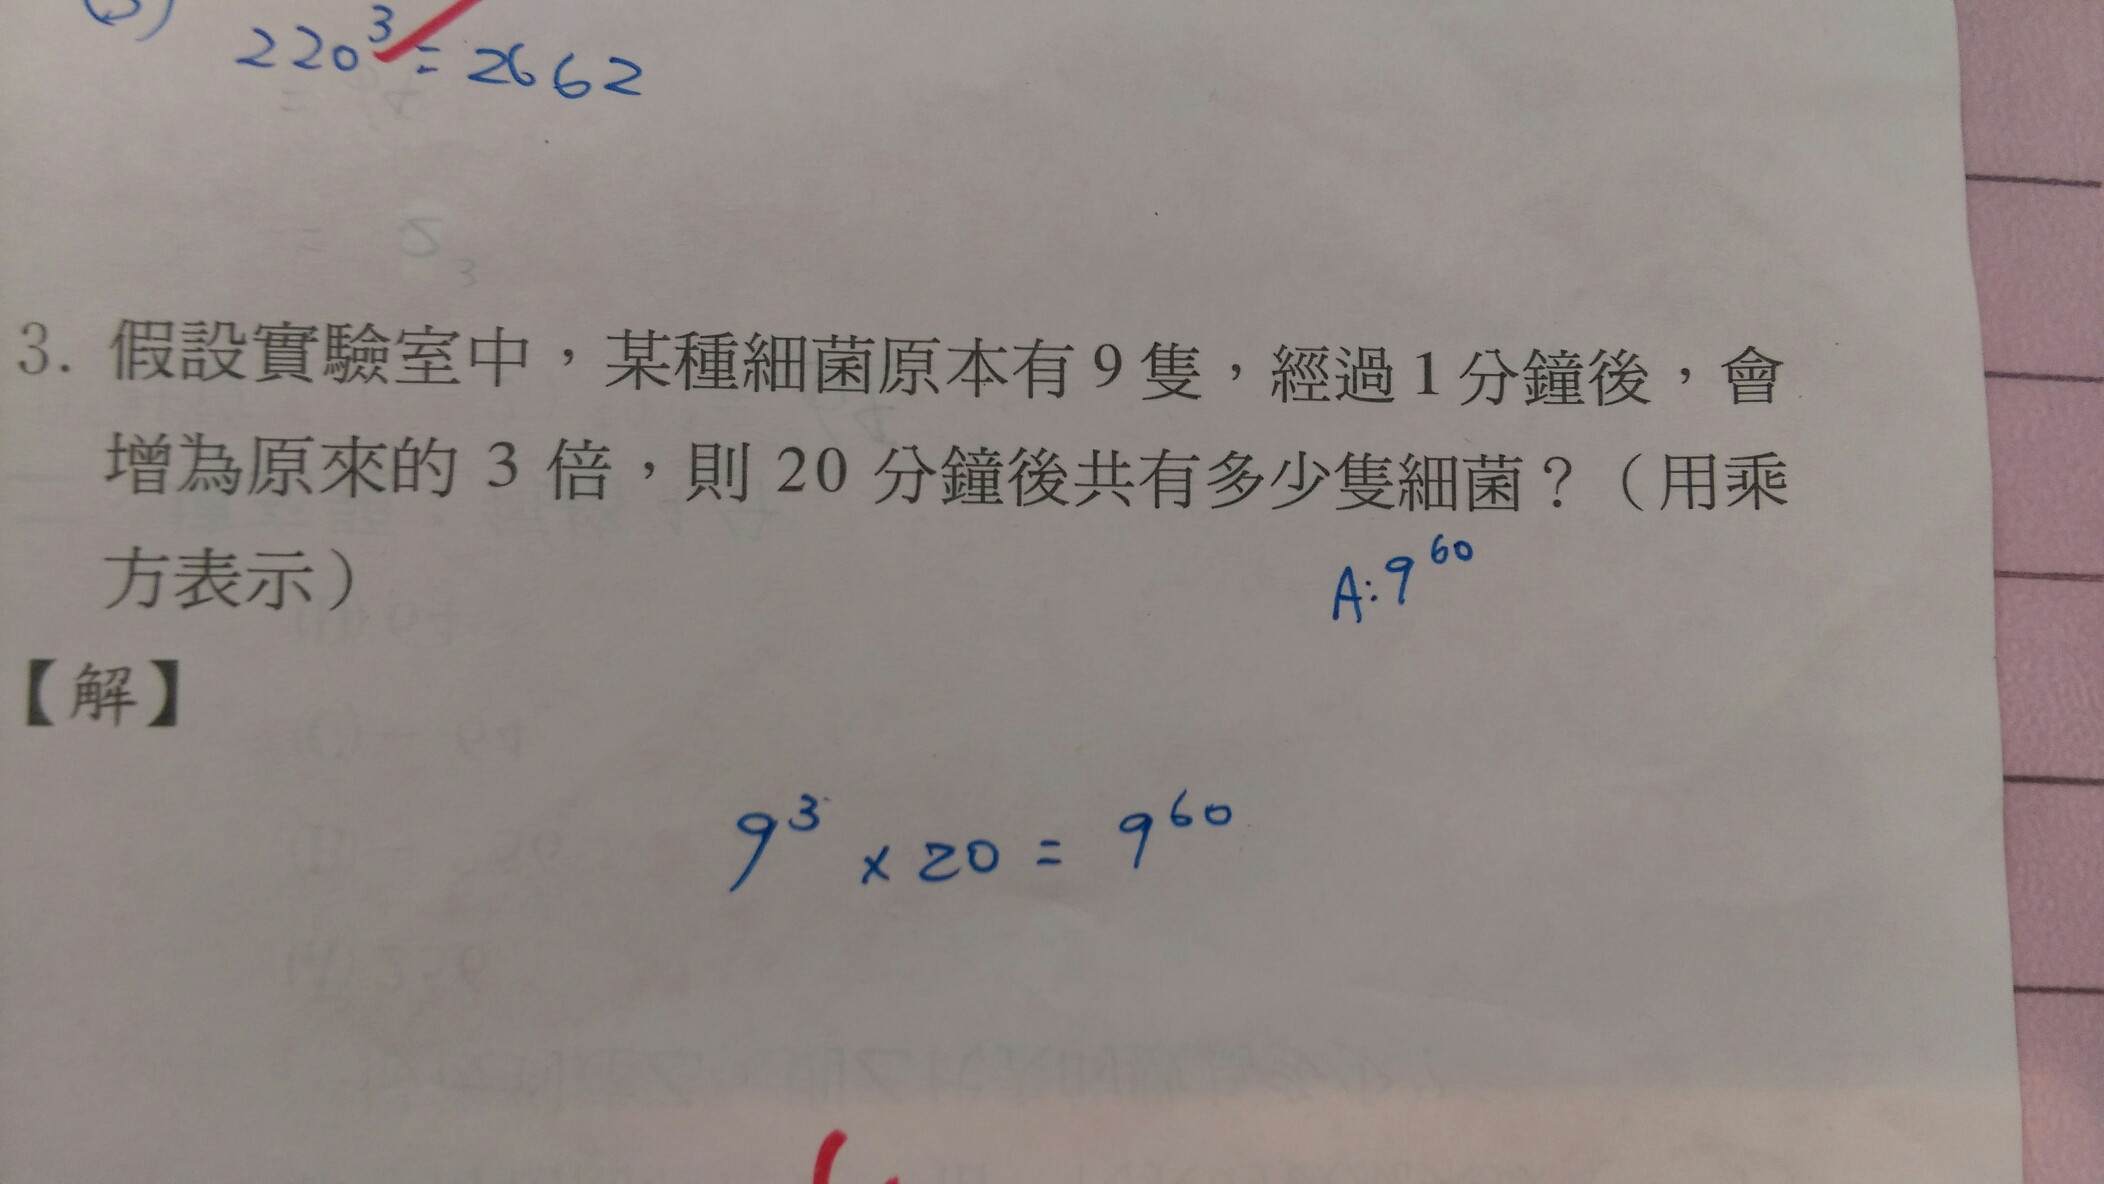 220³ = 2662
3. 假設實驗室中，某種細菌原本有 9 隻，經過 1 分鐘後，會
增為原來的 3 倍，則 20 分鐘後共有多少隻細菌？（用乘
方表示）
A: 9⁶⁰
【解】
9³ × 20 = 9⁶⁰